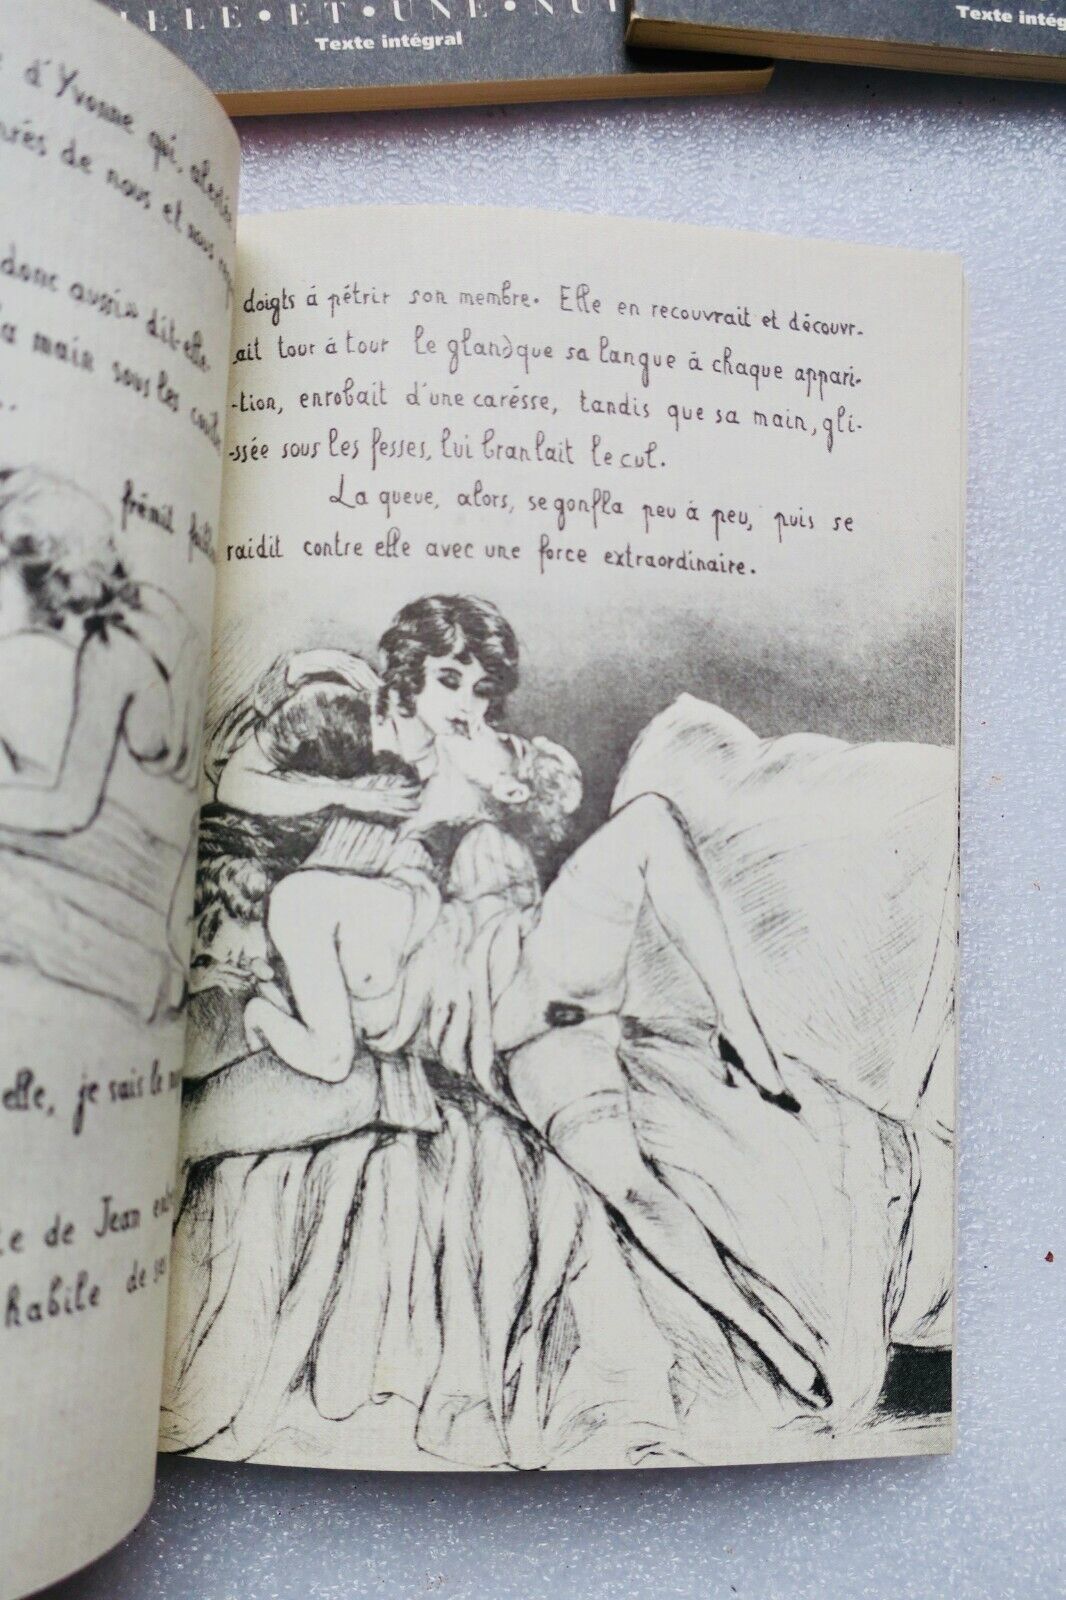 LLE • ET • UNE • NU
Texte intégral
Texte intég
d'Yvonne qui,
de nous et
donc aussi" dit-elle.
main sous les
frémit
elle, je sais le
de Jean
habile de
doigts à pétrir son membre. Elle en recouvrait et découvr-
-ait tour à tour le gland que sa langue à chaque appari-
-tion, enrobait d'une carésse, tandis que sa main, gli-
-ssée sous les fesses, lui branlait le cul.
La queue, alors, se gonfla peu à peu, puis se
raidit contre elle avec une force extraordinaire.